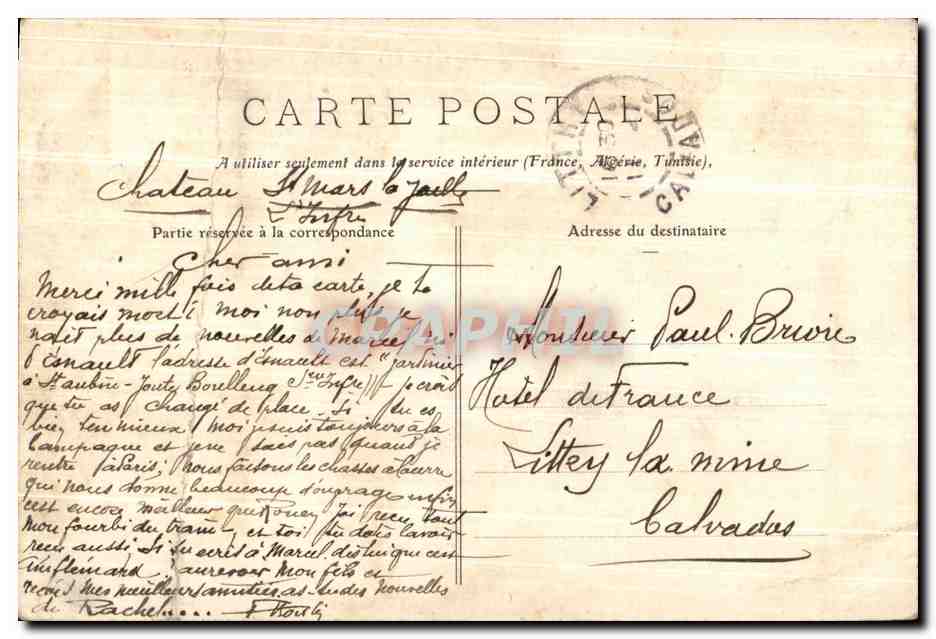 CARTE POSTALE
A utiliser seulement dans le service intérieur (France, Algérie, Tunisie),
Chateau St Mars la Jaille
L. Infre
Partie réservée à la correspondance
Adresse du destinataire
Cher ami
Merci mille fois de ta carte, je te
croyais mort ! moi non plus je
nait plus de nouvelles de Marcel ni
d'Esnault l'adresse d'Esnault est "jardinier
à St aubin - Jouty Boulleng Sne Infre)" je crois
que tu as changé de place. Si tu es
bien ten mieux moi je suis toujours à la
Campagne et je ne sais pas quant je
rentre à Paris; nous faisons les chasses à
qui nous donne beaucoup d'ouvrage enfin
c'est encore meilleur que Rouen J'ai reçu tout
mon fourbi du train et toi tu dois l'avoir
reçu aussi, Si tu ecris à Marcel dis que c'est
un flémard. aurevoir Mon fils et
reçois mes meilleurs amitiés as-tu des nouvelles
de Rachel....
Monsieur Paul. Brion
Hotel de France
Littry la mine
Calvados
CALVADOS
CPAPHIL